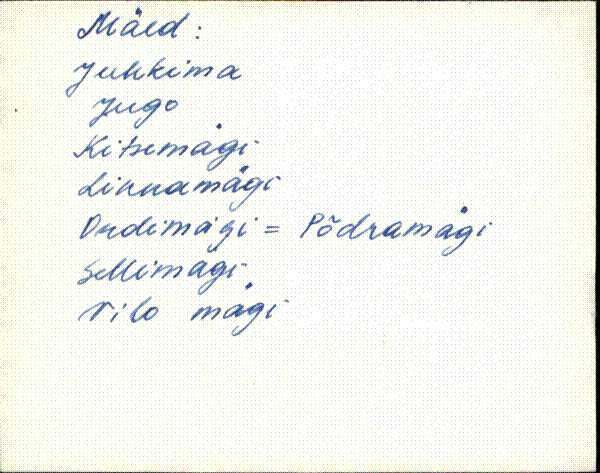 Mäed:
Juhkima
Jugo
Kitsemägi
Linnamägi
Ondimägi = Põdramägi
Sellimägi
Vilo mägi